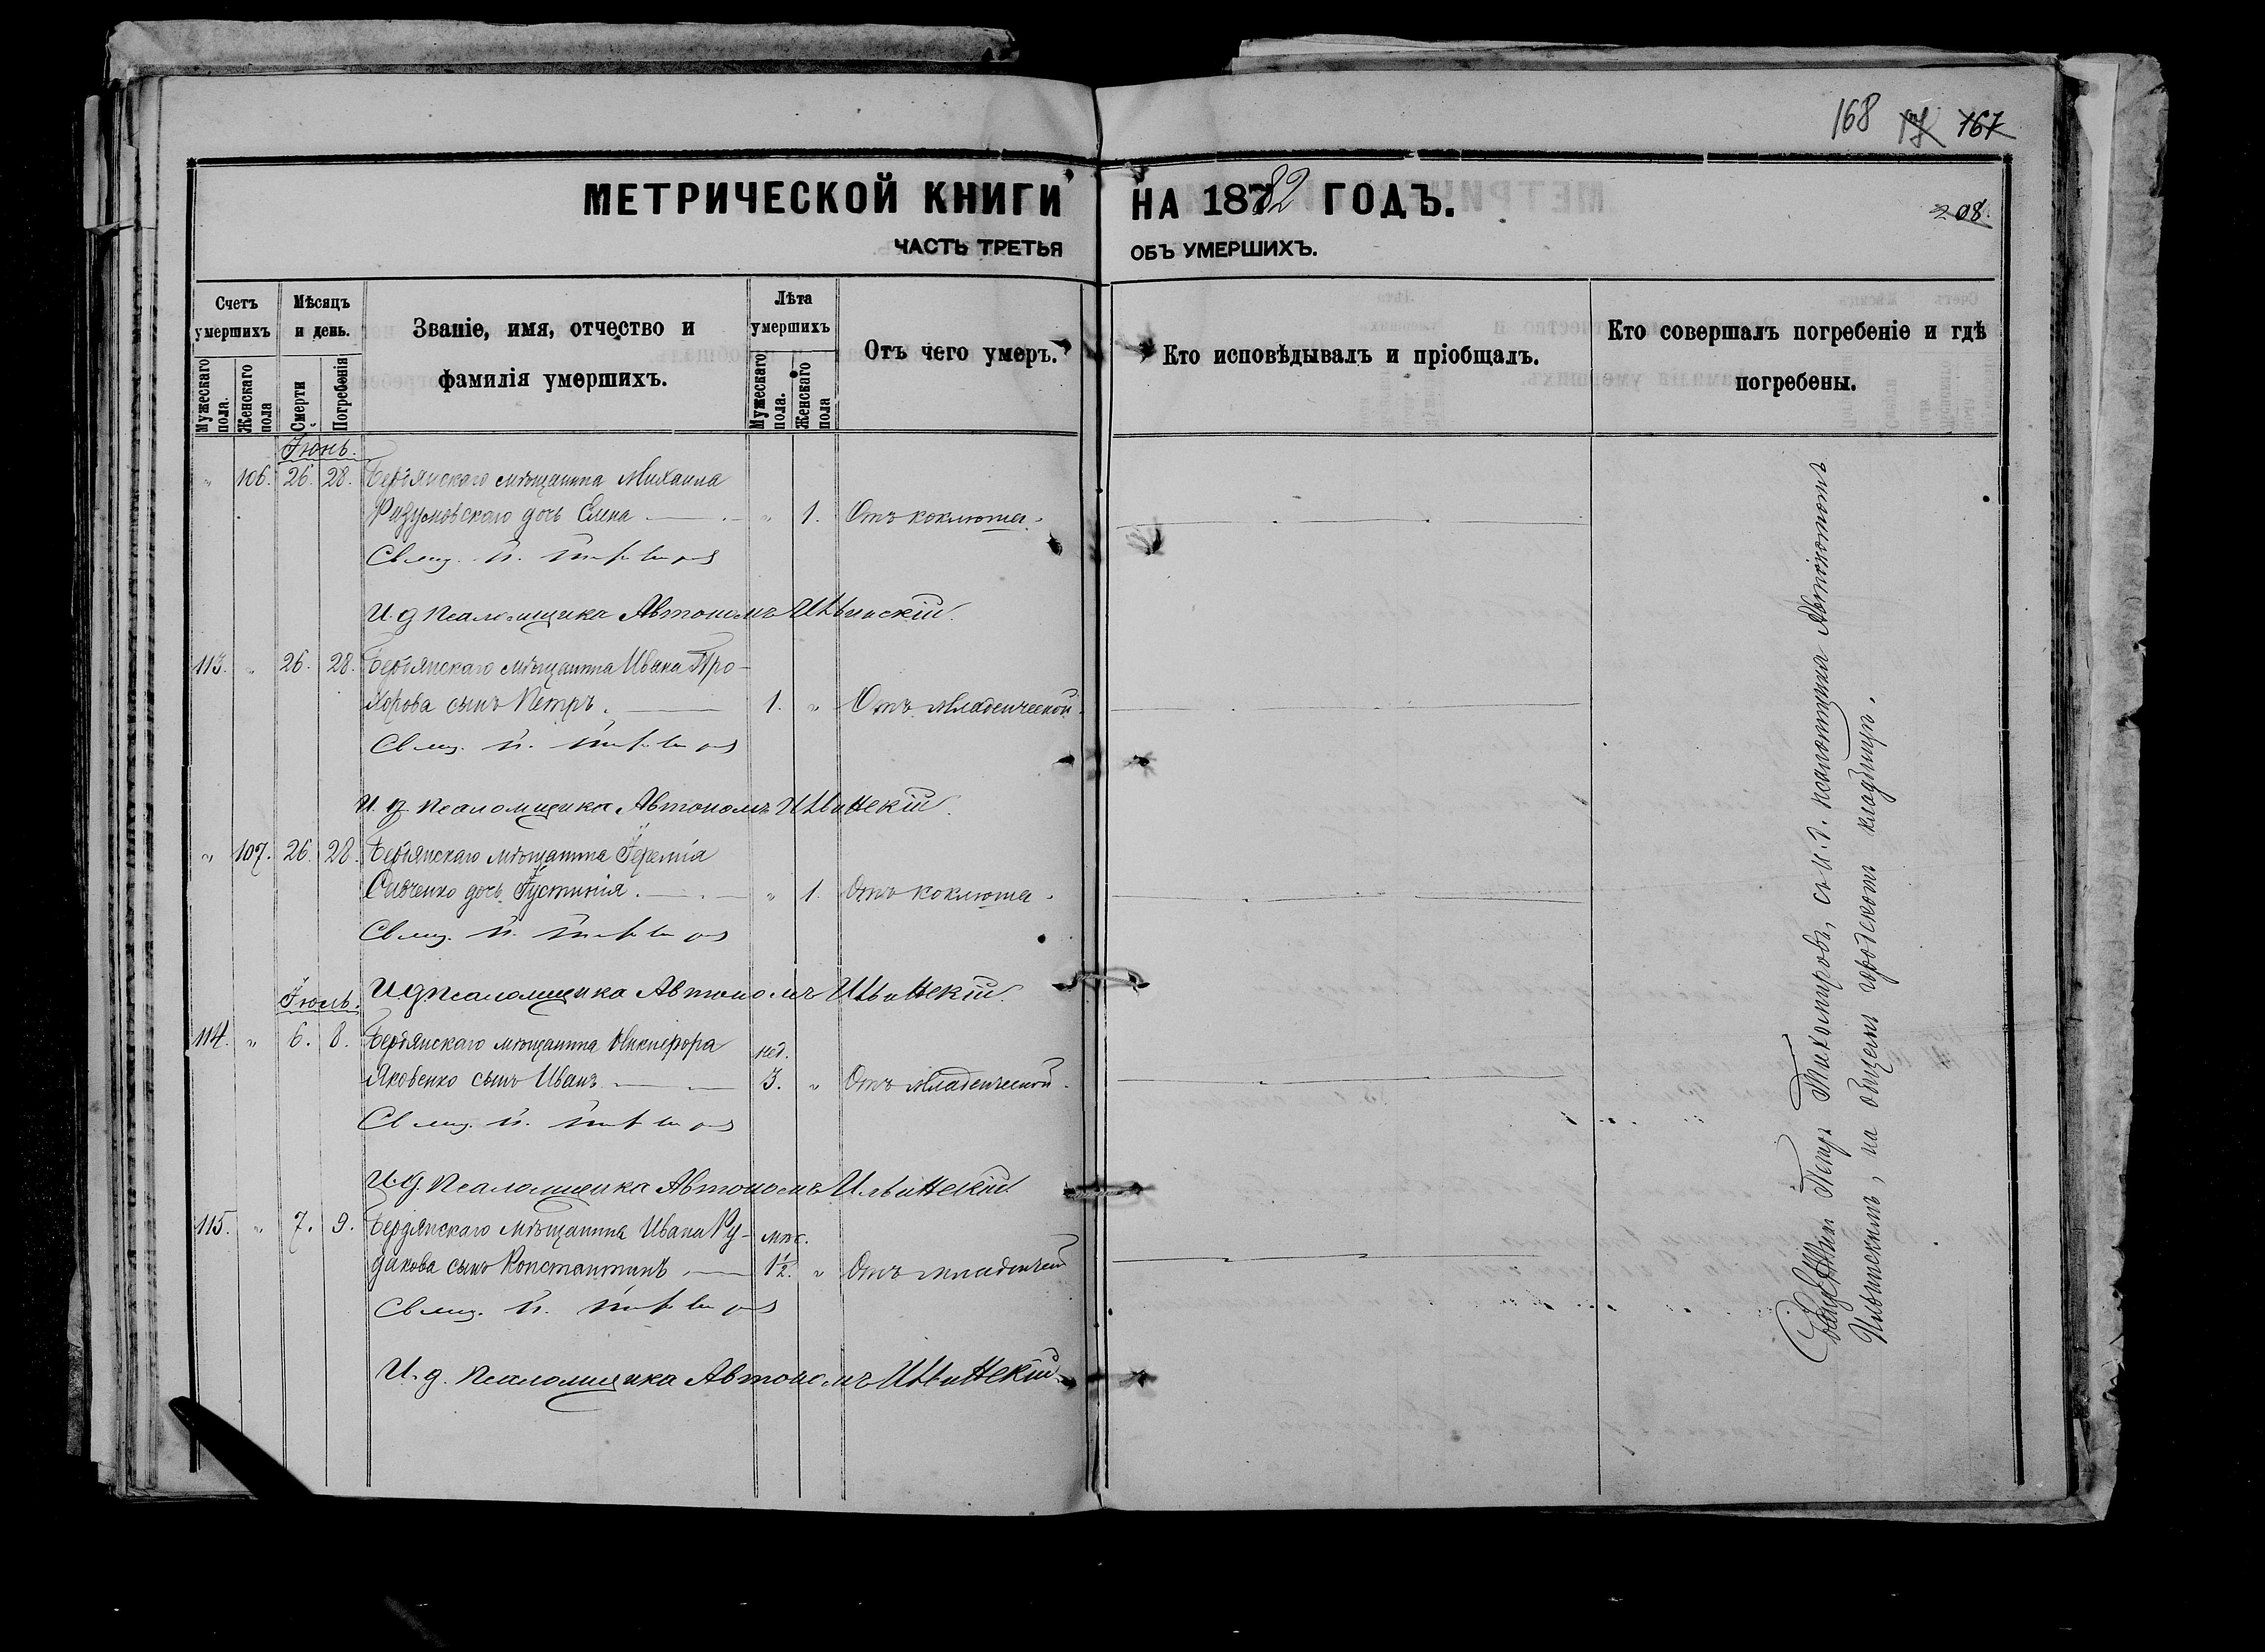 168 167
МЕТРИЧЕСКОЙ КНИГИ НА 1882 ГОДЪ.
208.
ЧАСТЬ ТРЕТЬЯ ОБЪ УМЕРШИХЪ.
Счетъ умершихъ
Мужескаго пола.
Женскаго пола
Мѣсяцъ и день.
Смерти
Погребенія
Званіе, имя, отчество и
фамилія умершихъ.
Лѣта умершихъ
Мужескаго пола.
Женскаго пола
Отъ чего умеръ.
Кто исповѣдывалъ и пріобщалъ.
Кто совершалъ погребеніе и гдѣ
погребены.
Іюнь.
" 106. 26. 28. Бердянскаго мѣщанина Михаила
Разумовскаго дочь Елена " 1. Отъ коклюша.
Свящ. П.
И. д. псаломщика Автономъ Ильинскій.
113. " 26. 28. Бердянскаго мѣщанина Ивана Про-
хорова сынъ Петръ. 1. " Отъ младенческой.
Свящ. П.
И. д. псаломщика Автономъ Ильинскій.
" 107. 26. 28. Бердянскаго мѣщанина Іереміа
Савченко дочь Іустинія. " 1. Отъ коклюша.
Свящ. П.
И д псаломщика Автономъ Ильинскій.
Іюль.
114. " 6. 8. Бердянскаго мѣщанина Никифора нед.
Яковенко сынъ Иванъ 3. " Отъ младенческой.
Свящ. П.
И. д. псаломщика Автономъ Ильинскій.
115. " 7. 9. Бердянскаго мѣщанина Ивана Ру- мѣс.
дакова сынъ Константинъ 1½. " Отъ младенчес
Свящ. П.
И. д. псаломщика Автономъ Ильинскій.
Петръ Тихомировъ, съ и. д. псаломщика Автономомъ
Ильинскимъ, на общемъ городскомъ кладбищѣ.